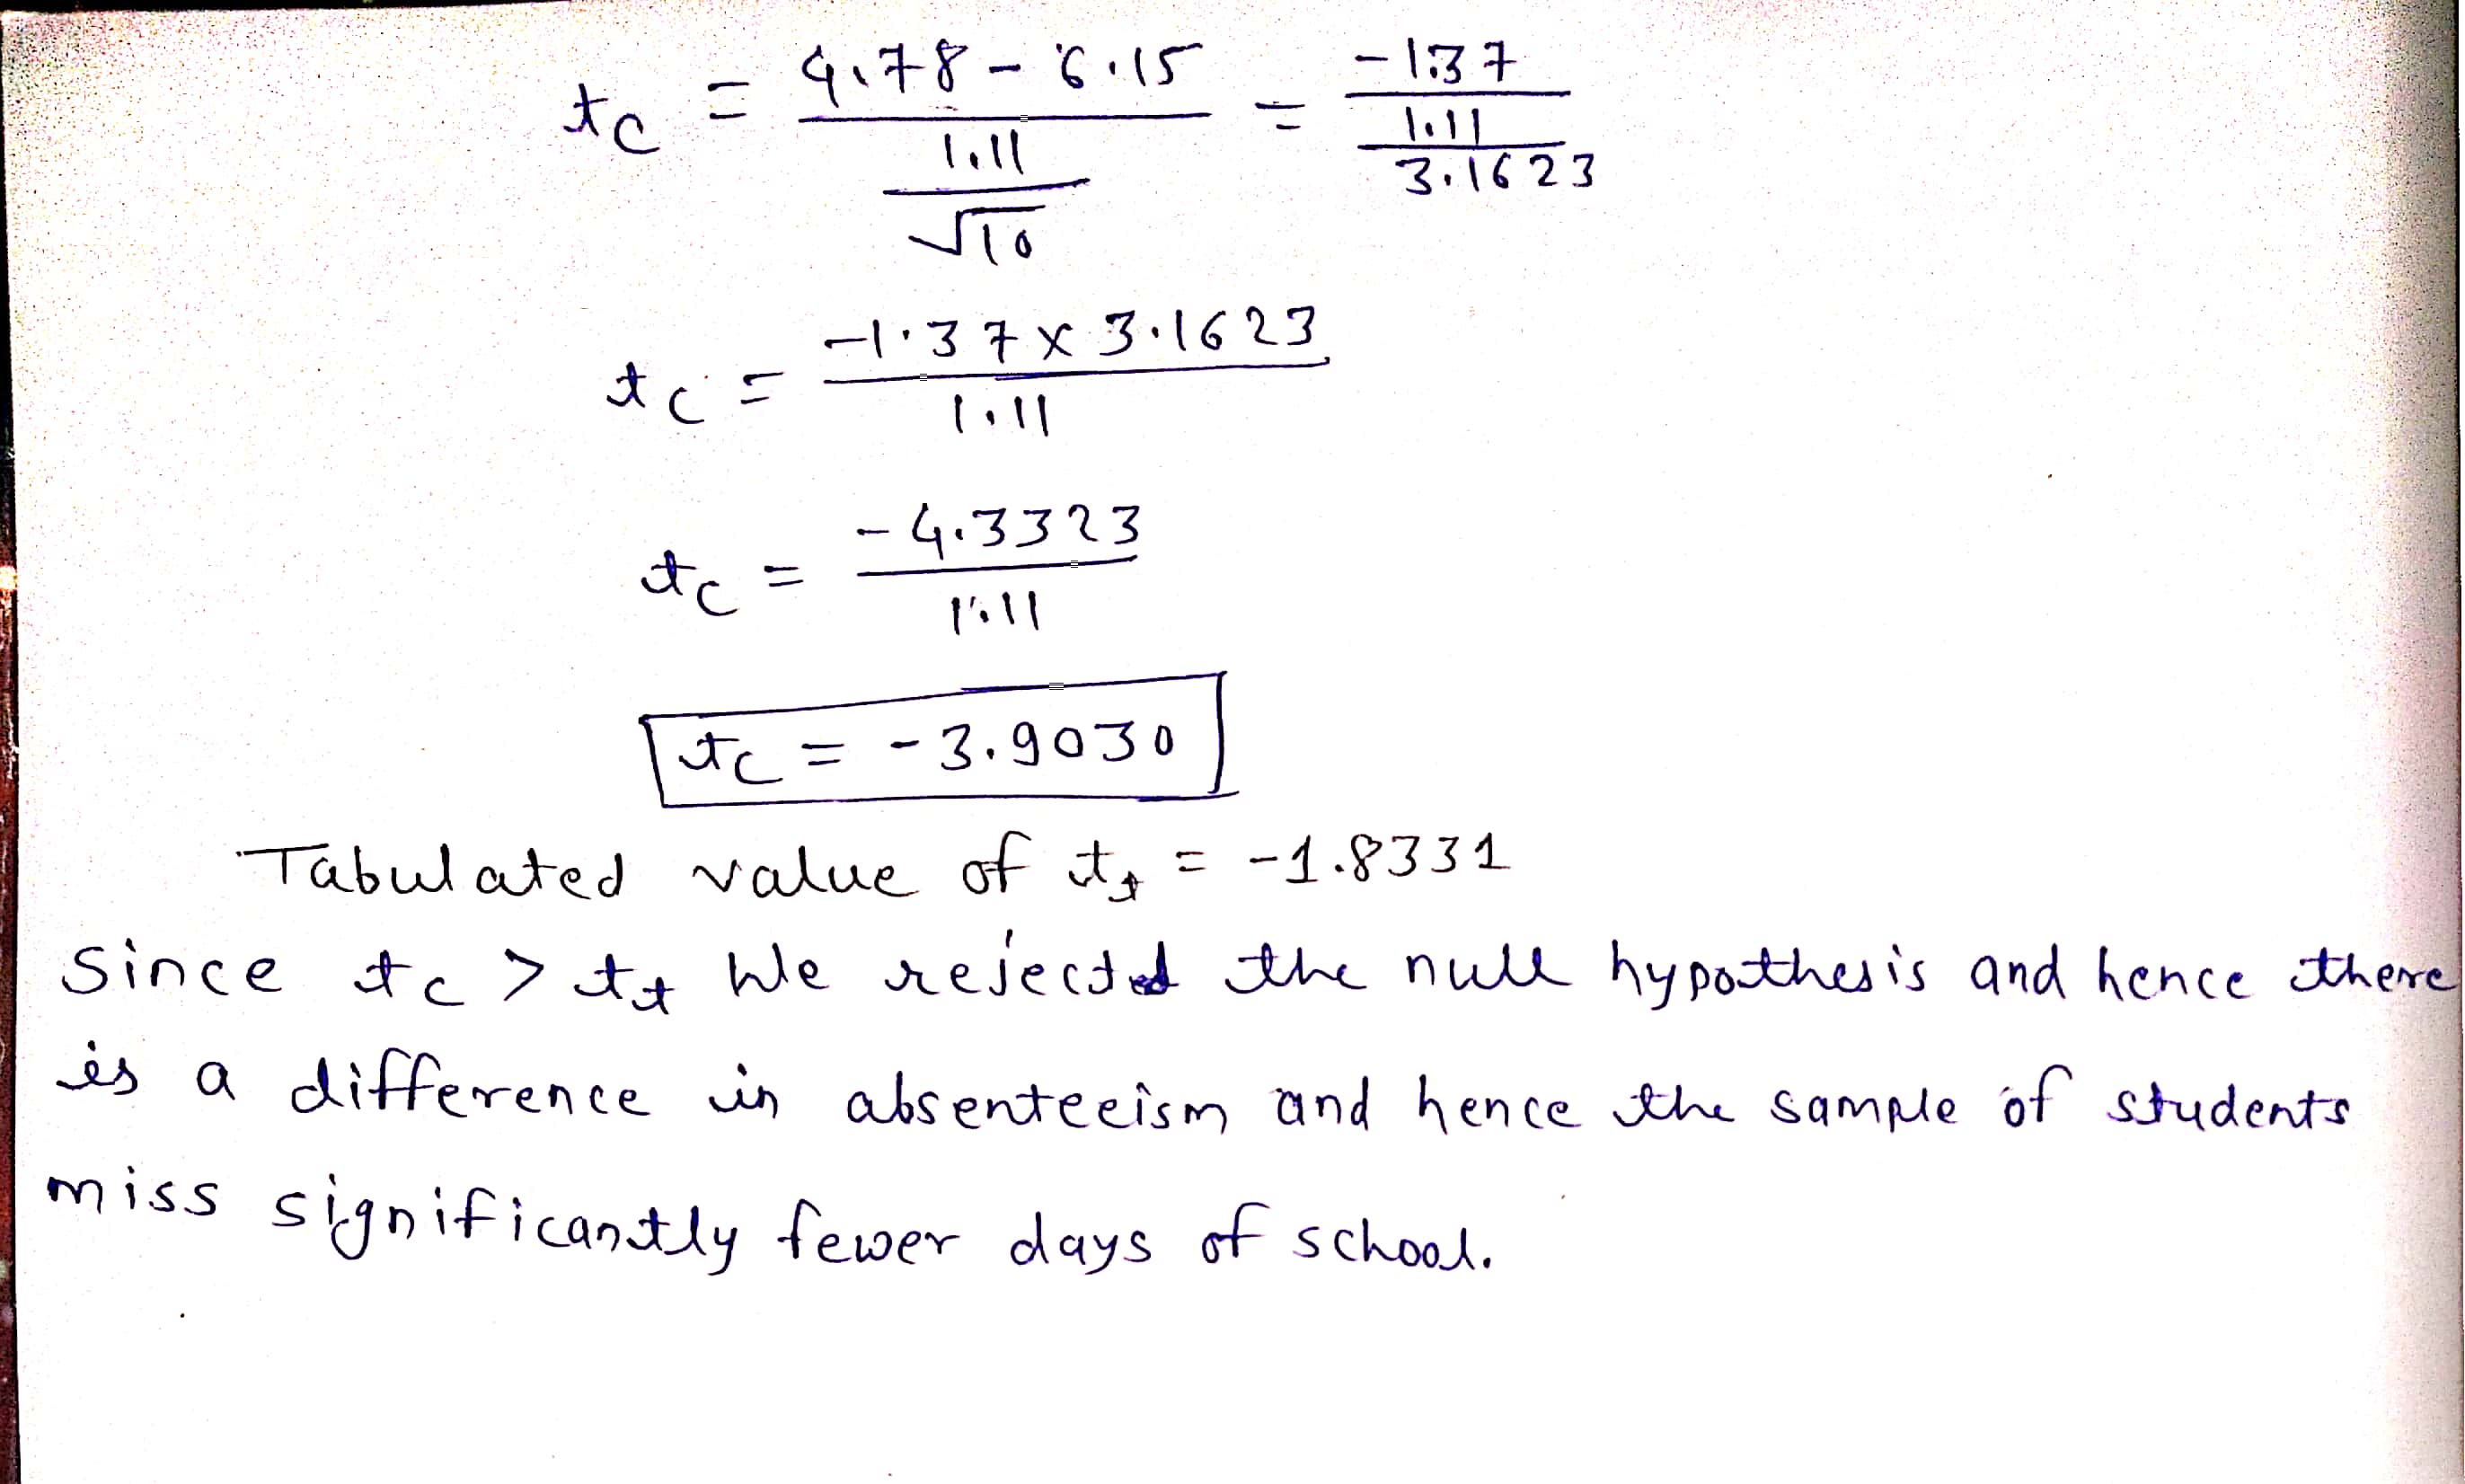 tc = 4.78 - 6.15 / (1.11 / √10) = -1.37 / (1.11 / 3.1623)
tc = -1.37 x 3.1623 / 1.11
tc = -4.3323 / 1.11
tc = -3.9030
Tabulated value of tt = -1.8331
Since tc > tt We rejected the null hypothesis and hence there
is a difference in absenteeism and hence the sample of students
miss significantly fewer days of school.